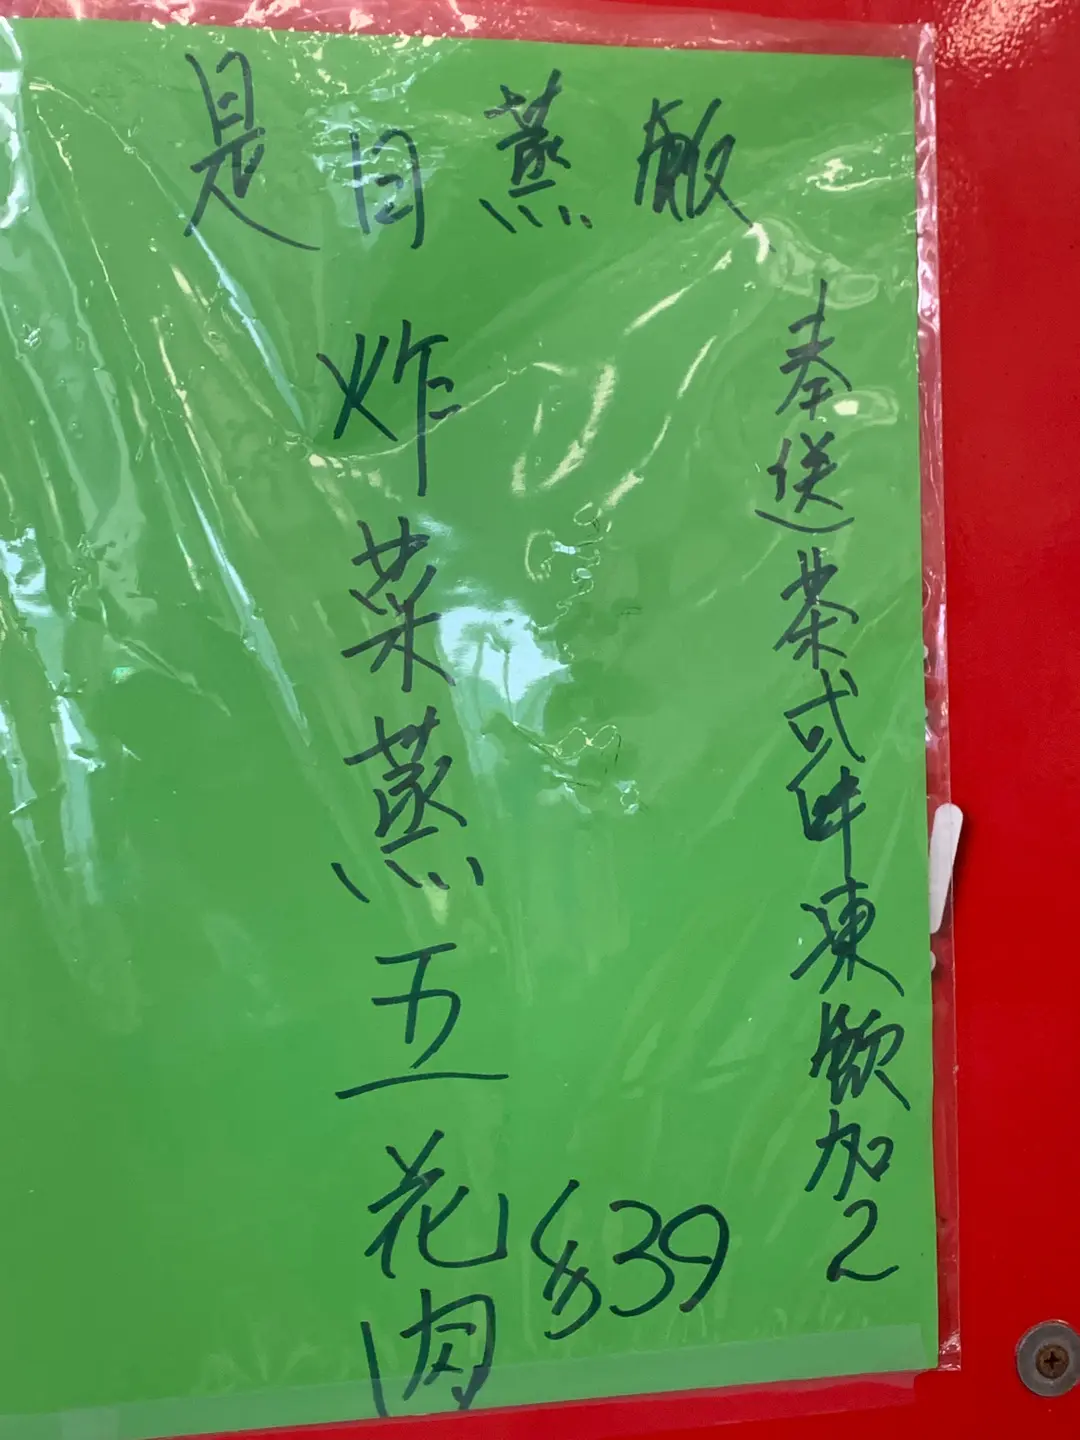 是日蒸飯
炸菜蒸五花肉
$39
奉送茶或啡凍飲加2